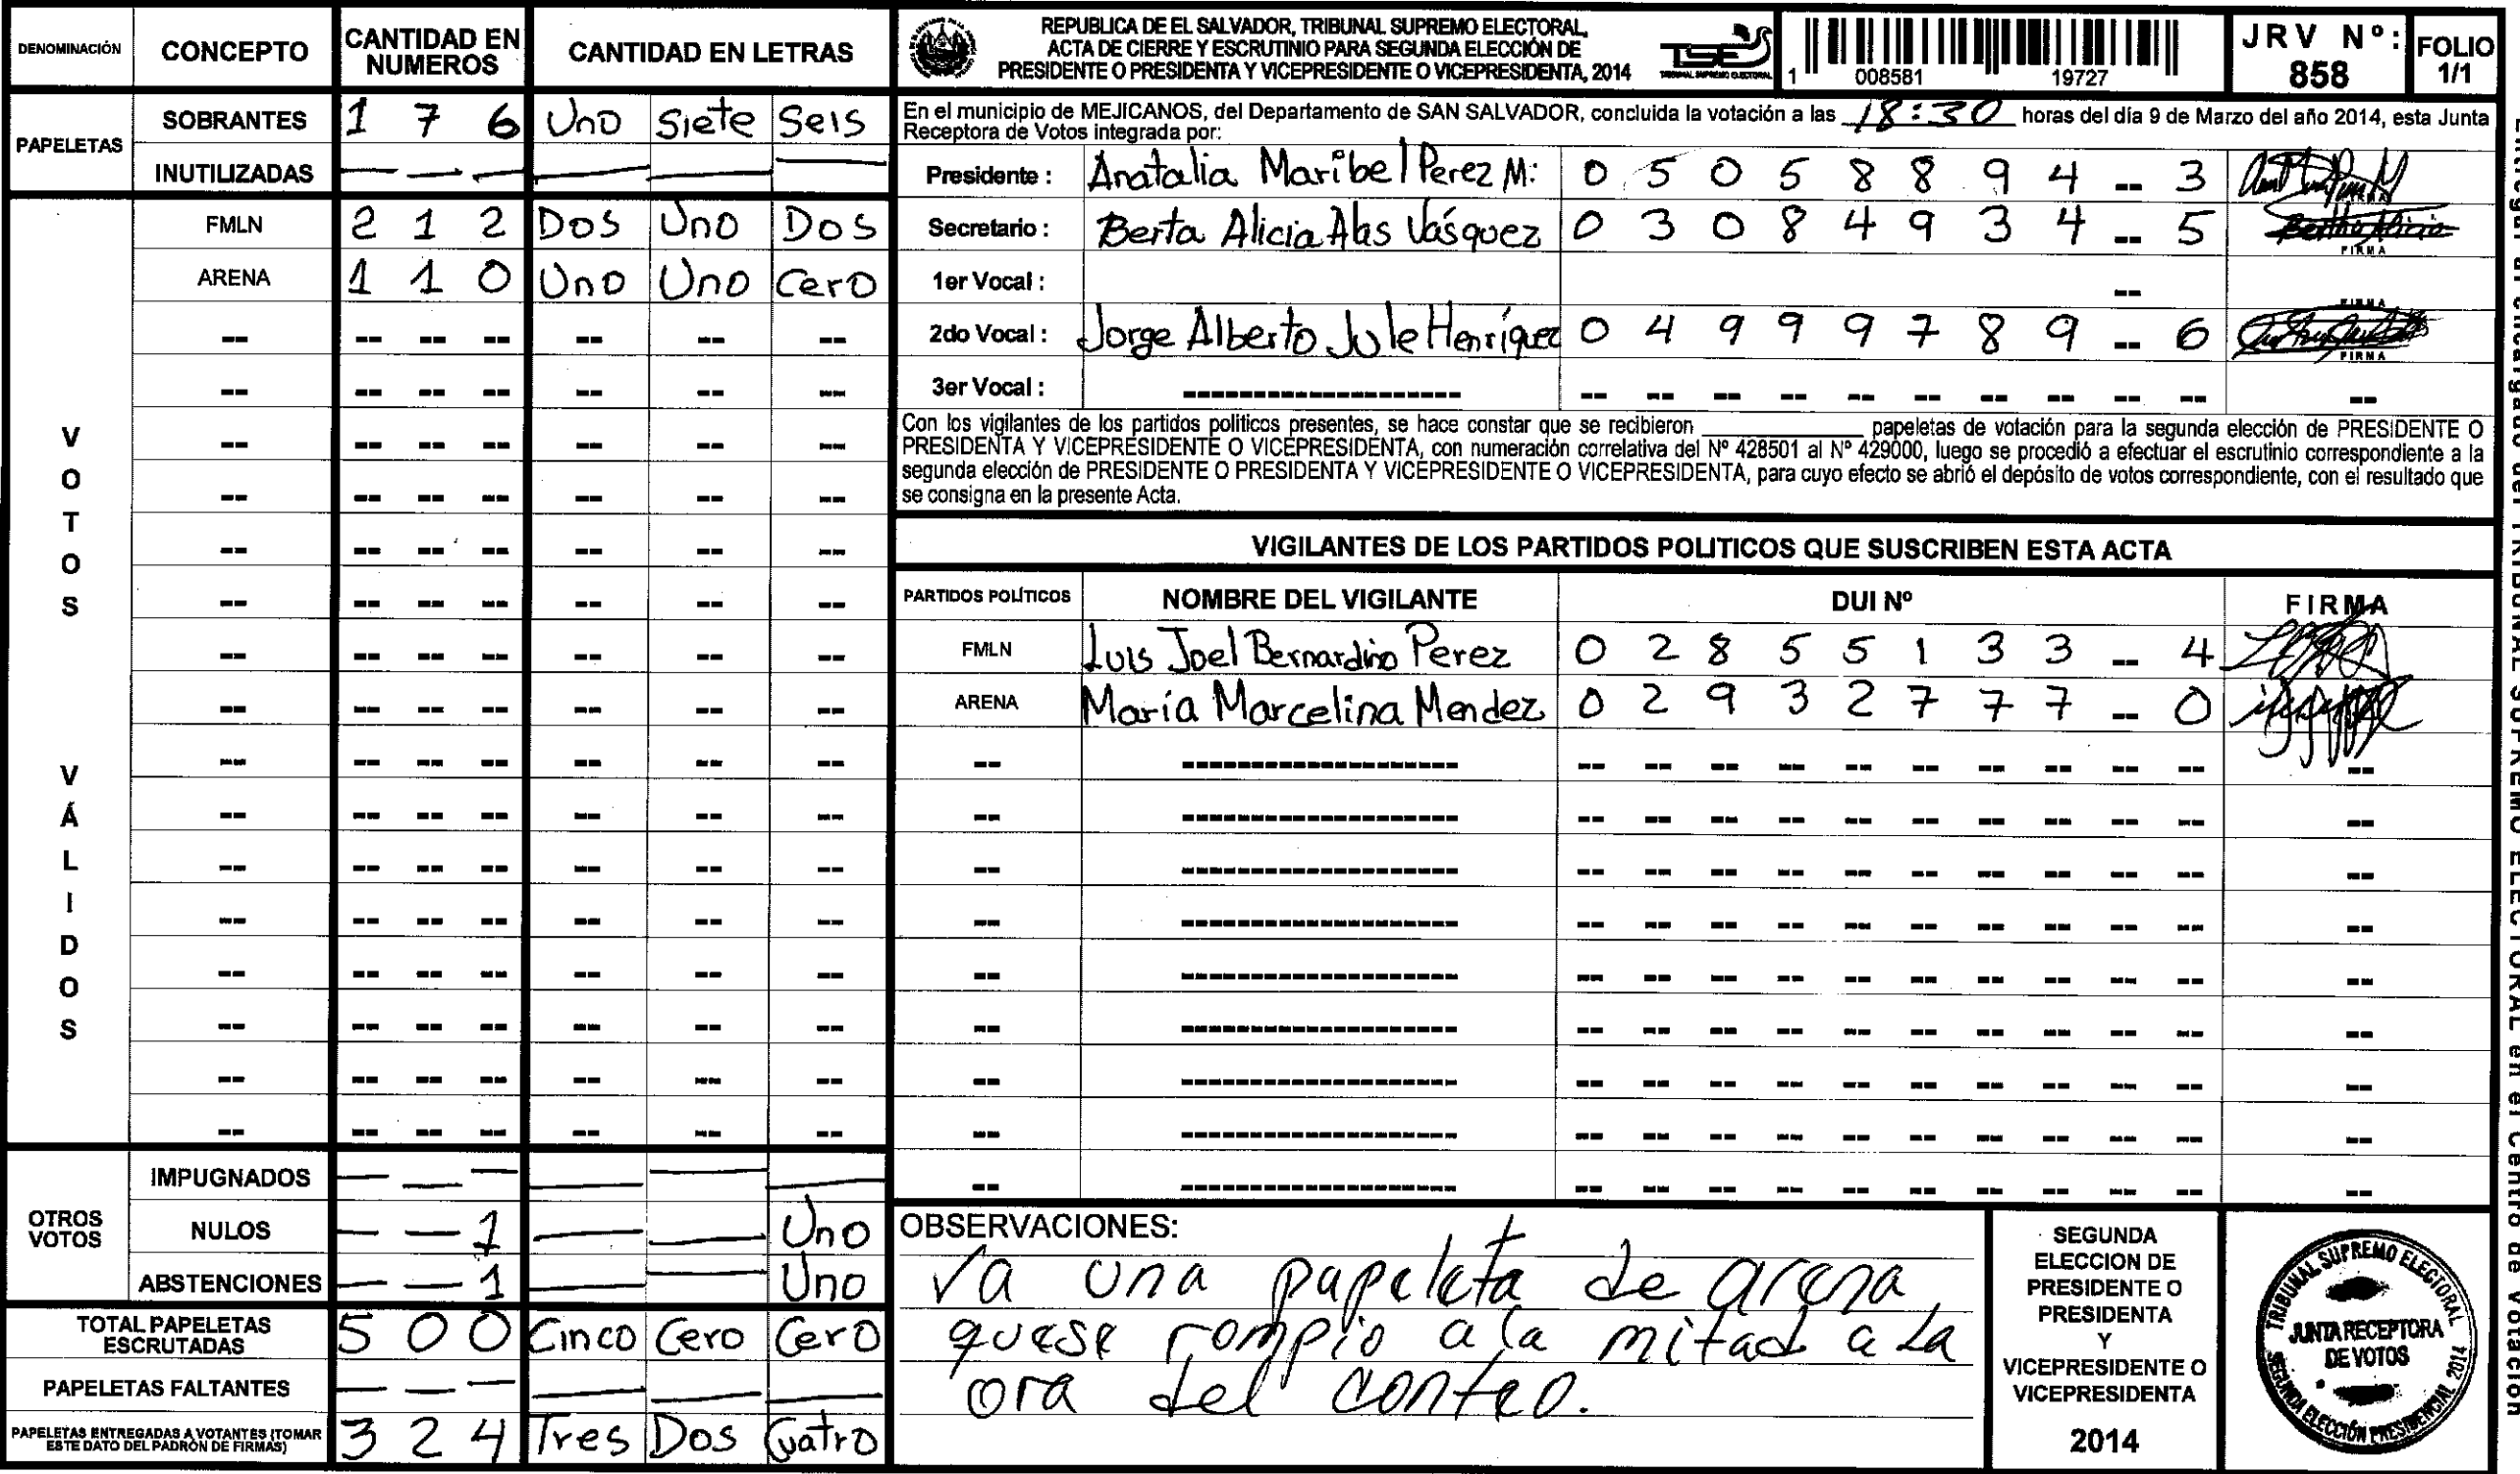 DENOMINACIÓN CONCEPTO CANTIDAD EN NUMEROS CANTIDAD EN LETRAS
PAPELETAS
SOBRANTES 1 7 6 Uno Siete Seis
INUTILIZADAS — — — — — —
VOTOS VÁLIDOS
FMLN 2 1 2 Dos Uno Dos
ARENA 1 1 0 Uno Uno Cero
OTROS VOTOS
IMPUGNADOS — — — — — —
NULOS — — 1 — — Uno
ABSTENCIONES — — 1 — — Uno
TOTAL PAPELETAS ESCRUTADAS 5 0 0 Cinco Cero Cero
PAPELETAS FALTANTES — — — — — —
PAPELETAS ENTREGADAS A VOTANTES (TOMAR ESTE DATO DEL PADRÓN DE FIRMAS) 3 2 4 Tres Dos Cuatro
REPUBLICA DE EL SALVADOR, TRIBUNAL SUPREMO ELECTORAL,
ACTA DE CIERRE Y ESCRUTINIO PARA SEGUNDA ELECCIÓN DE
PRESIDENTE O PRESIDENTA Y VICEPRESIDENTE O VICEPRESIDENTA, 2014
TSE
TRIBUNAL SUPREMO ELECTORAL
1 008581 19727
JRV Nº: 858
FOLIO 1/1
En el municipio de MEJICANOS, del Departamento de SAN SALVADOR, concluida la votación a las 18:30 horas del día 9 de Marzo del año 2014, esta Junta
Receptora de Votos integrada por:
Presidente : Anatalia Maribel Perez M: 0 5 0 5 8 8 9 4 -- 3
FIRMA
Secretario : Berta Alicia Alas Vásquez 0 3 0 8 4 9 3 4 -- 5 Bertha Alicia
FIRMA
1er Vocal : --
FIRMA
2do Vocal : Jorge Alberto Jule Henríquez 0 4 9 9 9 7 8 9 -- 6
FIRMA
3er Vocal :
Con los vigilantes de los partidos politicos presentes, se hace constar que se recibieron ________ papeletas de votación para la segunda elección de PRESIDENTE O
PRESIDENTA Y VICEPRESIDENTE O VICEPRESIDENTA, con numeración correlativa del Nº 428501 al Nº 429000, luego se procedió a efectuar el escrutinio correspondiente a la
segunda elección de PRESIDENTE O PRESIDENTA Y VICEPRESIDENTE O VICEPRESIDENTA, para cuyo efecto se abrió el depósito de votos correspondiente, con el resultado que
se consigna en la presente Acta.
VIGILANTES DE LOS PARTIDOS POLITICOS QUE SUSCRIBEN ESTA ACTA
PARTIDOS POLÍTICOS NOMBRE DEL VIGILANTE DUI Nº FIRMA
FMLN Luis Joel Bernardino Perez 0 2 8 5 5 1 3 3 -- 4
ARENA María Marcelina Mendez 0 2 9 3 2 7 7 7 -- 0
OBSERVACIONES:
va una papeleta de arena
quese rompio a la mitad a la
ora del conteo.
SEGUNDA
ELECCION DE
PRESIDENTE O
PRESIDENTA
Y
VICEPRESIDENTE O
VICEPRESIDENTA
2014
TRIBUNAL SUPREMO ELECTORAL
JUNTA RECEPTORA
DE VOTOS
SEGUNDA ELECCIÓN PRESIDENCIAL 2014
Entregar al encargado del TRIBUNAL SUPREMO ELECTORAL en el Centro de Votación